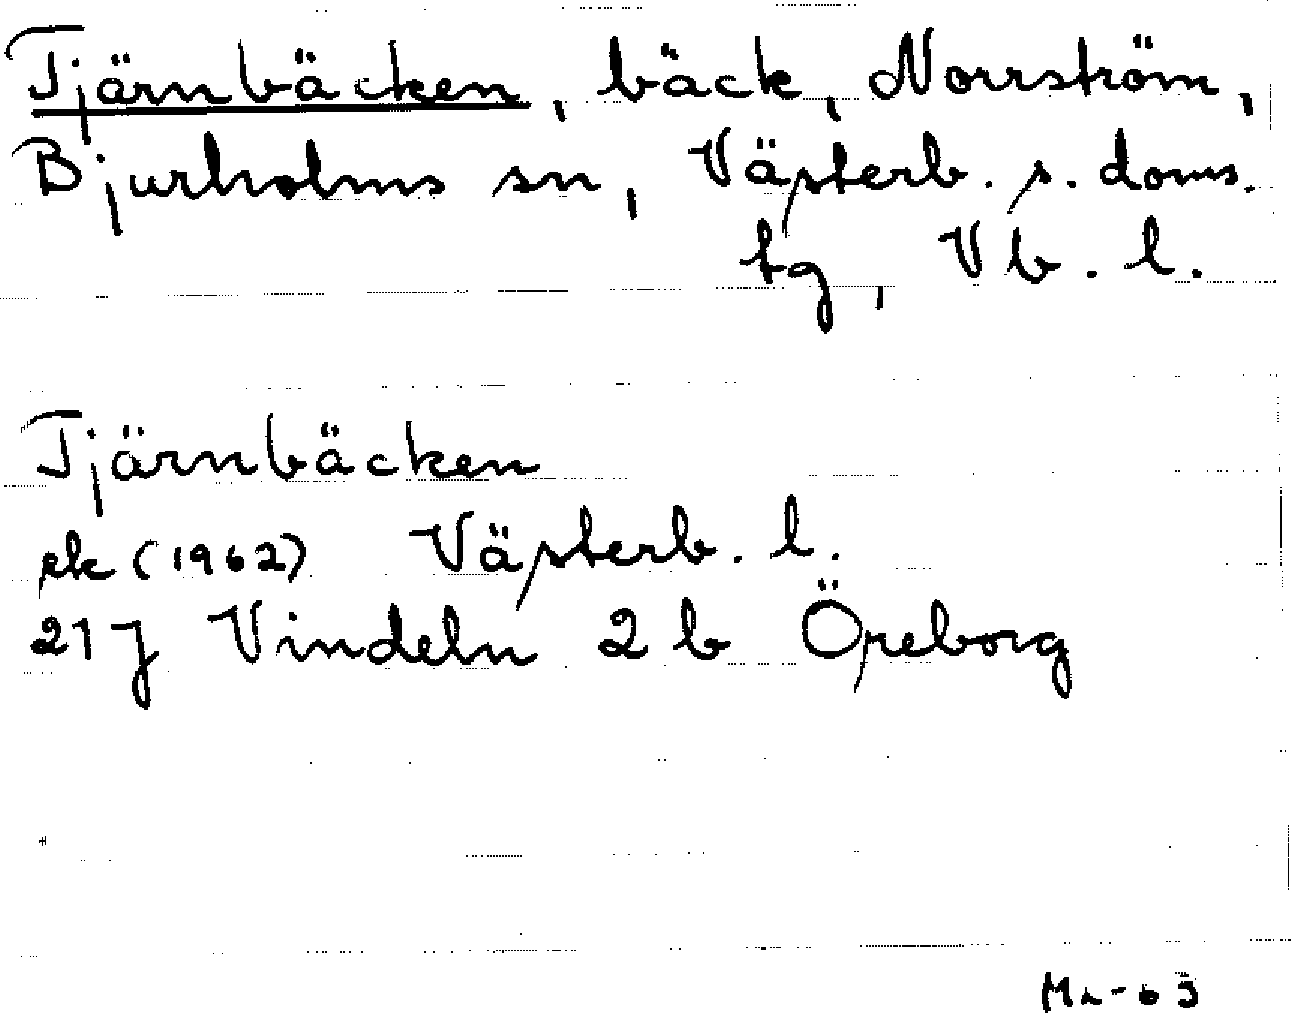 Tjärnbäcken, bäck, Norrström,
Bjurholms sn, Västerb. s. doms.
tg, Vb. l.
Tjärnbäcken
ek (1962) Västerb. l.
21 J Vindeln 2 b Öreborg